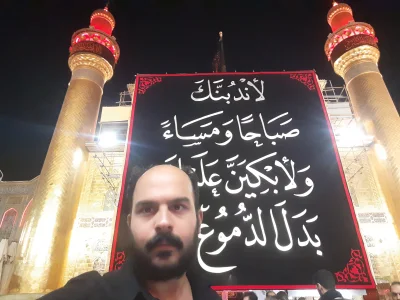 لَأَنْدُبَنَّكَ
صَبَاحًا وَمَسَاءً
وَلَأَبْكِيَنَّ
بَدَلَ الدُّمُوعِ